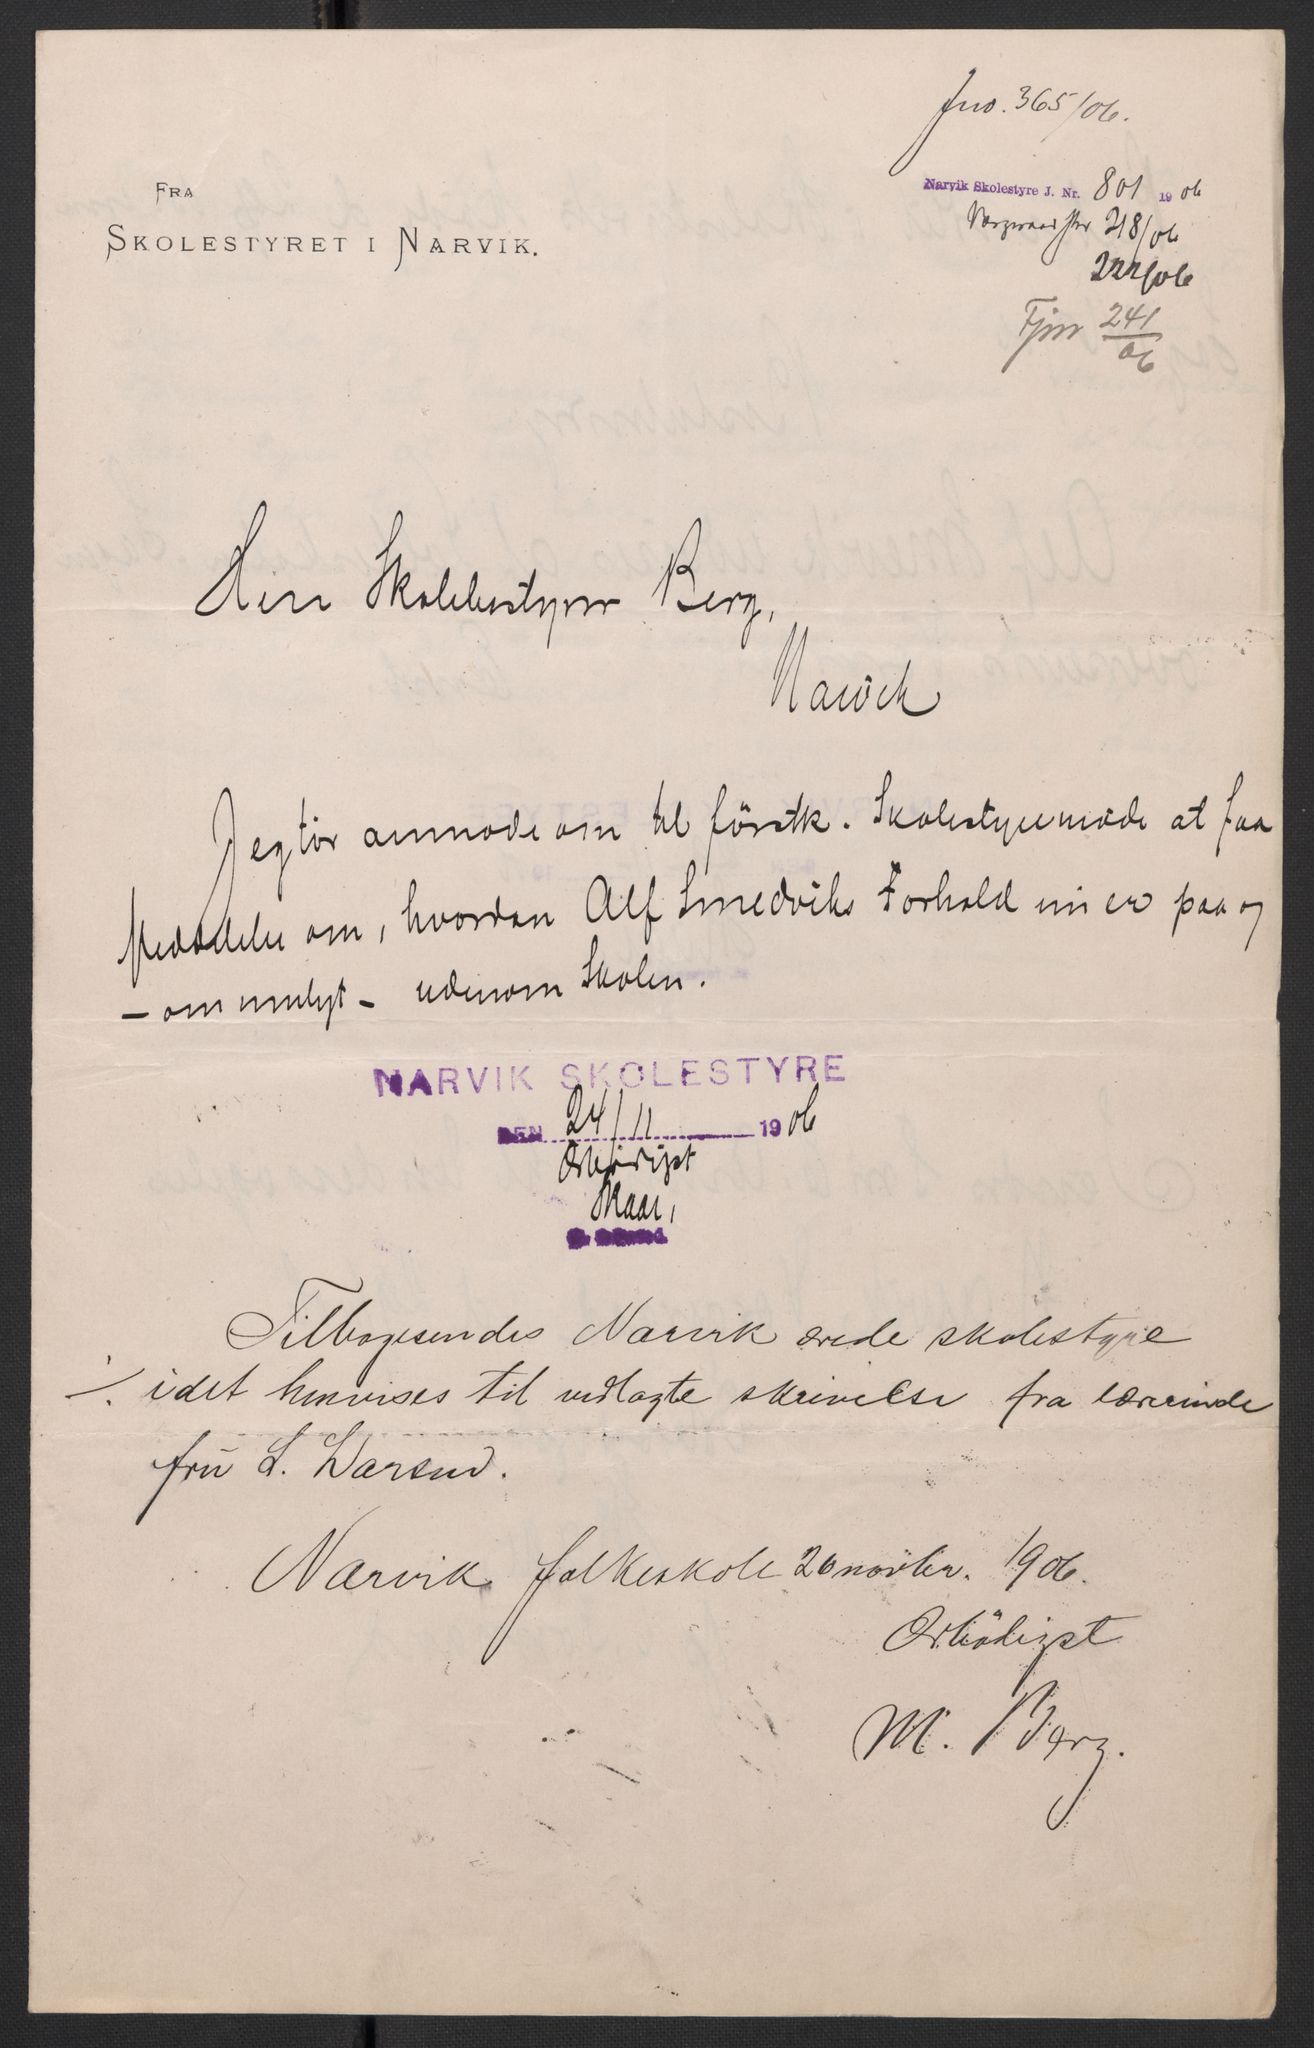 Jno. 365/06.
FRA
SKOLESTYRET I NARVIK.
Narvik Skolestyre J. Nr. 801 1906
Vergeraad Jnr 218/06
222/06
Fjnr 241/06
Herr Skolebestyrer Berg,
Narvik
Jeg tør anmode om til førstk. Skolestyremøde at faa
Meddelelse om, hvordan Alf Smedviks Forhold nu er paa og
- om muligt - udenom Skolen.
NARVIK SKOLESTYRE
DEN 24/11 1906
Ærbødigst
Skaar,
Tilbagesendes Narvik ærede skolestyre
./. idet henvises til vedlagte skrivelse fra lærerinde
fru L. Larsen.
Narvik folkeskole 26 novbr. 1906.
Ærbødigst
M. Berg.